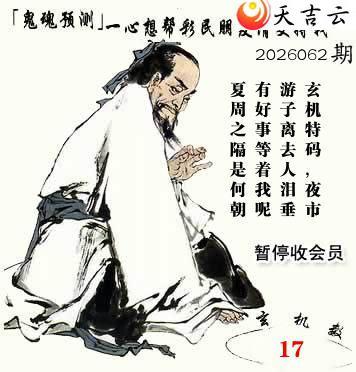 「鬼魂预测」一心想帮彩民朋
天吉云
2026062期
玄机特码，夜市
游子离去人泪垂
有好事等着我呢
夏周之隔是何朝
暂停收会员
玄机数
17